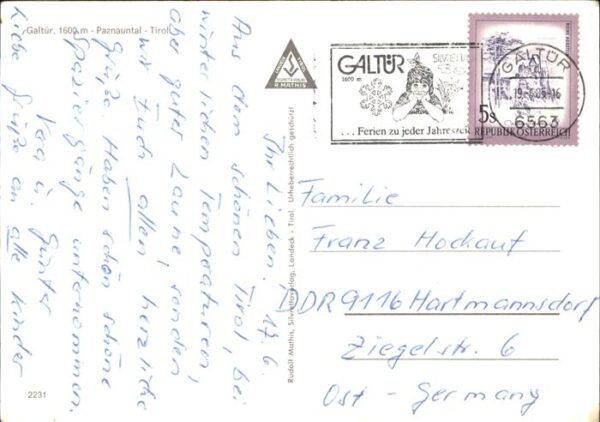 Galtür. 1600 m - Paznauntal - Tirol
17. 6.
Ihr Lieben!
Aus dem schönen Tirol, bei
winterlichen Temperaturen,
aber guter Laune, senden
wir Euch allen, herzliche
Grüße. Haben schön schöne
Spaziergänge unternommen.
Günter
Liebe Grüße an alle Kinder
2231
R MATHIS
Rudolf Mathis, Silvrettaverlag, Landeck - Tirol. Urheberrechtlich geschützt
GALTÜR
1600 m
... Ferien zu jeder Jahreszeit
GALTÜR
6563
5s
REPUBLIK ÖSTERREICH
Familie
Franz Hockauf
DDR 9116 Hartmannsdorf
Ziegelstr. 6
Ost - Germany